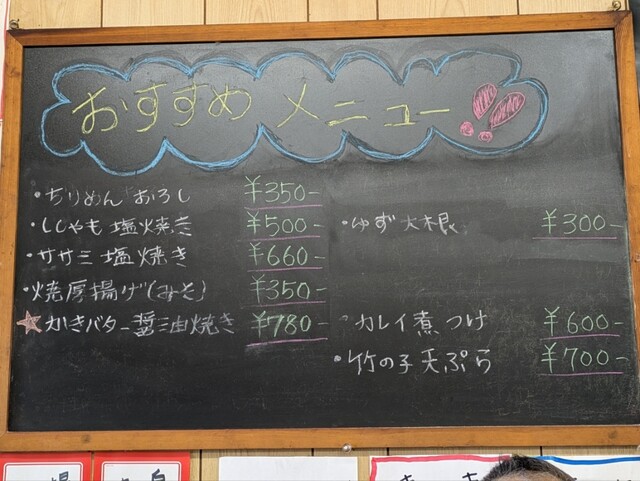 おすすめ メニュー!!
・ちりめんおろし ¥350-
・ししゃも塩焼き ¥500-
・ササミ塩焼き ¥660-
・焼厚揚げ(みそ) ¥350-
☆かきバター醤油焼き ¥780-
・ゆず大根 ¥300-
・カレイ煮つけ ¥600-
・竹の子天ぷら ¥700-